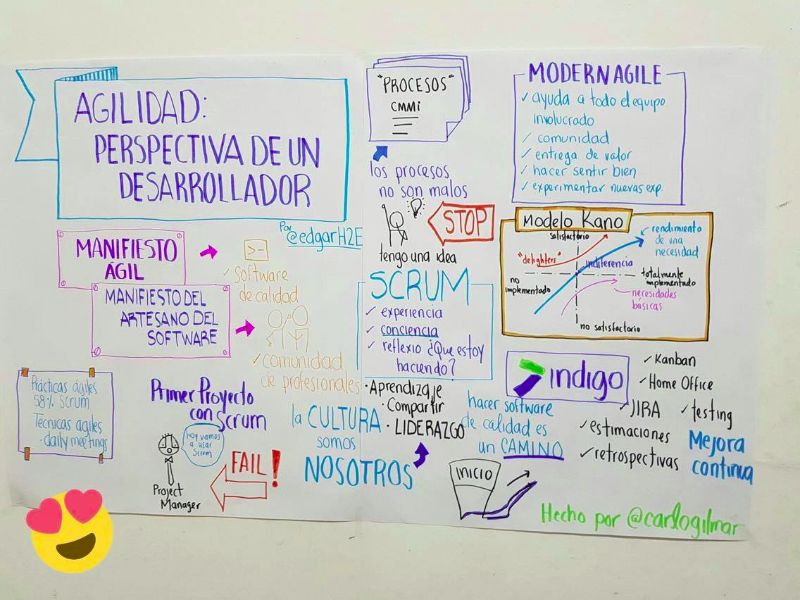 AGILIDAD:
PERSPECTIVA DE UN
DESARROLLADOR
Por @edgarH2E
MANIFIESTO
ÁGIL
MANIFIESTO DEL
ARTESANO DEL
SOFTWARE
✓ software
de calidad
✓ comunidad
de profesionales
Prácticas ágiles
58% Scrum
Técnicas ágiles
- daily meetings
Primer Proyecto
con Scrum
hoy vamos
a usar
Scrum
Project
Manager
FAIL!
"PROCESOS"
CMMi
los procesos
no son malos
STOP
tengo una idea
SCRUM
✓ experiencia
✓ conciencia
✓ reflexio ¿Que estoy
haciendo?
• Aprendizaje
• Compartir
• LIDERAZGO
la CULTURA
somos
NOSOTROS
MODERN AGILE
✓ ayuda a todo el equipo
involucrado
✓ comunidad
✓ entrega de valor
✓ hacer sentir bien
✓ experimentar nuevas exp.
Modelo Kano
satisfactorio
rendimiento
de una
necesidad
"delighters"
indiferencia
no
implementado
totalmente
implementado
necesidades
básicas
no satisfactorio
indigo
hacer software
de calidad es
un CAMINO
INICIO
✓ Kanban
✓ Home Office
✓ JIRA
✓ testing
✓ estimaciones
✓ retrospectivas
Mejora
continua
Hecho por @carlogilmar